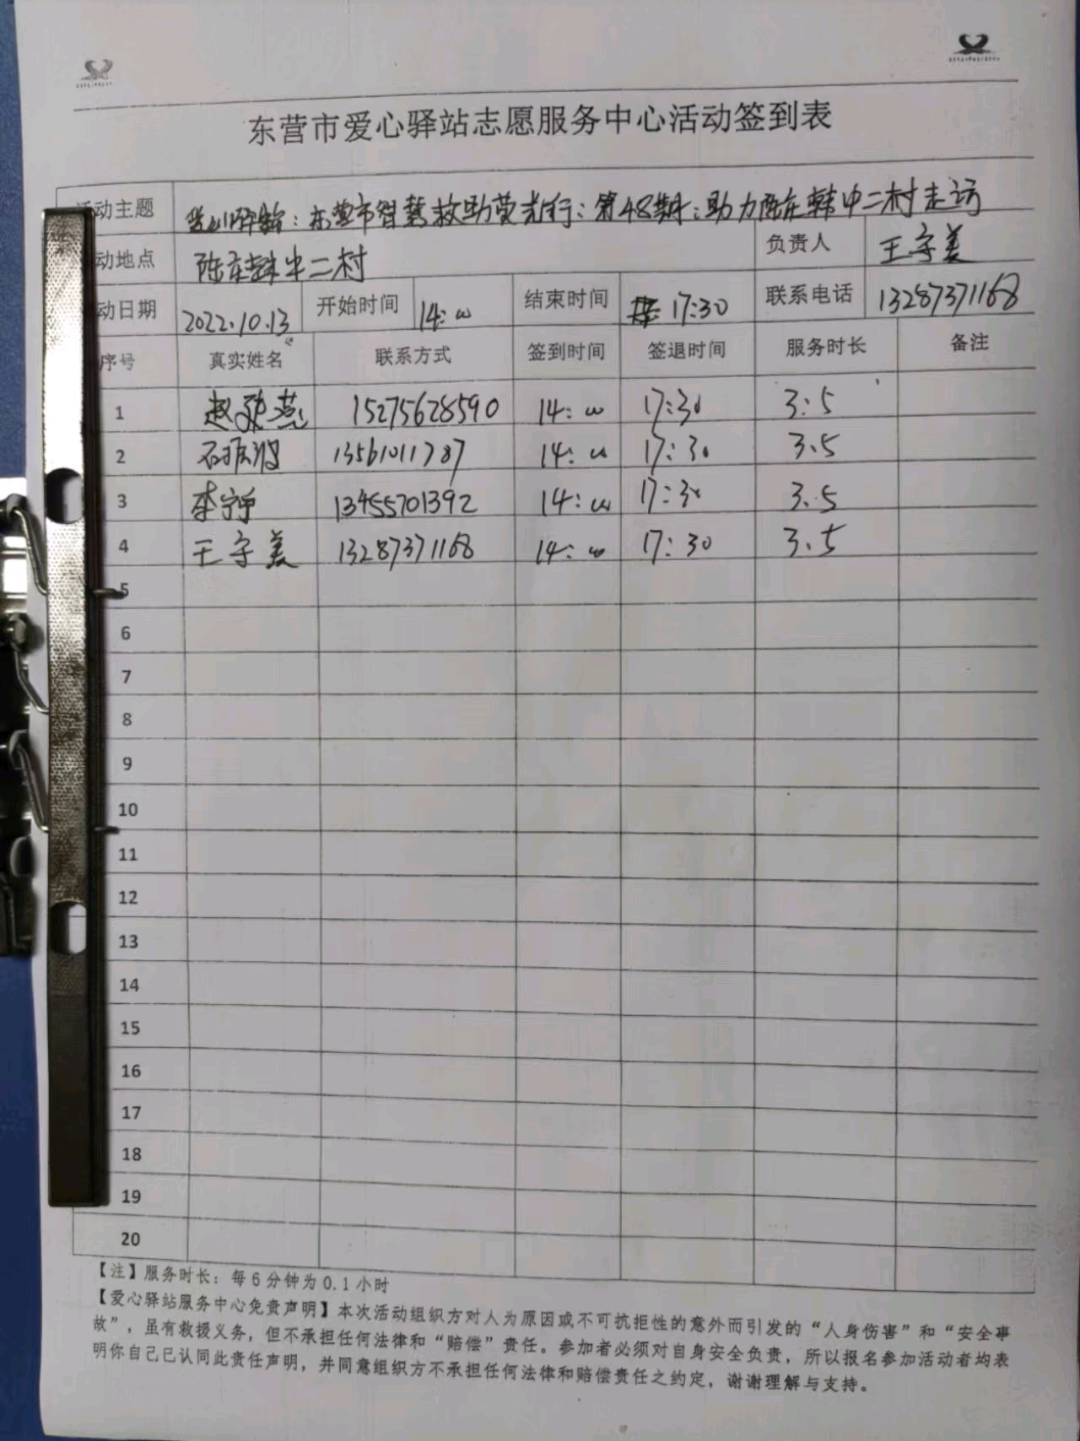 东营市爱心驿站志愿服务中心活动签到表
活动主题 爱心驿站：东营市智慧救助荧光行：第48期：助力陈庄韩中二村走访
动地点 陈庄韩中二村 负责人 王字美
动日期 2022.10.13 开始时间 14:00 结束时间 17:30 联系电话 13287371168
序号 真实姓名 联系方式 签到时间 签退时间 服务时长 备注
1 赵 燕 15275628590 14:00 17:30 3.5
2 石振波 13561011787 14:00 17:30 3.5
3 李宁 13455701392 14:00 17:30 3.5
4 王字美 13287371168 14:00 17:30 3.5
5
6
7
8
9
10
11
12
13
14
15
16
17
18
19
20
【注】服务时长：每6分钟为0.1小时
【爱心驿站服务中心免责声明】本次活动组织方对人为原因或不可抗拒性的意外而引发的“人身伤害”和“安全事
故”，虽有救援义务，但不承担任何法律和“赔偿”责任。参加者必须对自身安全负责，所以报名参加活动者均表
明你自己已认同此责任声明，并同意组织方不承担任何法律和赔偿责任之约定，谢谢理解与支持。